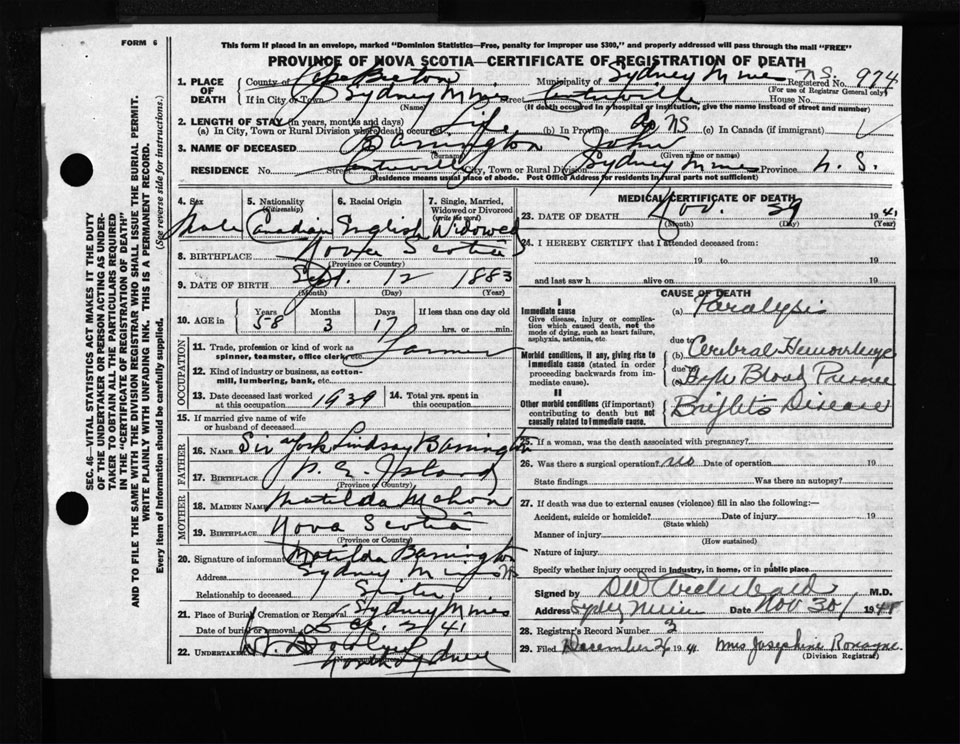 FORM 6
This form if placed in an envelope, marked "Dominion Statistics—Free, penalty for improper use $300," and properly addressed will pass through the mail "FREE"
PROVINCE OF NOVA SCOTIA—CERTIFICATE OF REGISTRATION OF DEATH
1. PLACE OF DEATH County of Cape Breton Municipality of Sydney Mines N.S. Registered No. 974
(For use of Registrar General only)
If in City or Town Sydney Mines Street House No.
(Name) (If death occurred in a hospital or institution, give the name instead of street and number)
2. LENGTH OF STAY (in years, months and days)
(a) In City, Town or Rural Division where death occurred Life (b) In Province NS (c) In Canada (if immigrant)
3. NAME OF DECEASED Barrington John
(Surname) (Given name or names)
RESIDENCE No. Street City, Town or Rural Division Sydney Mines Province N. S.
(Residence means usual place of abode. Post Office Address for residents in rural parts not sufficient)
4. Sex 5. Nationality (Citizenship) 6. Racial Origin 7. Single, Married, Widowed or Divorced (write the word)
Male Canadian English Widowed
8. BIRTHPLACE Nova Scotia
(Province or Country)
9. DATE OF BIRTH Sept. 12 1883
(Month) (Day) (Year)
10. AGE in Years Months Days If less than one day old
58 3 17 hrs. or min.
OCCUPATION
11. Trade, profession or kind of work as spinner, teamster, office clerk, etc. Farmer
12. Kind of industry or business, as cotton-mill, lumbering, bank, etc.
13. Date deceased last worked at this occupation 1939 14. Total yrs. spent in this occupation
15. If married give name of wife or husband of deceased
FATHER
16. NAME Sir York Lindsay Barrington
17. BIRTHPLACE P. E. Island
(Province or Country)
MOTHER
18. MAIDEN NAME Matilda Mahon
19. BIRTHPLACE Nova Scotia
(Province or Country)
20. Signature of informant Matilda Barrington
Address Sydney Mines NS
Relationship to deceased Sister
21. Place of Burial, Cremation or Removal Sydney Mines
Date of burial or removal 2/41
22. UNDERTAKER
(Name)
North Sydney
MEDICAL CERTIFICATE OF DEATH
23. DATE OF DEATH Nov. 29 1941
(Month) (Day) (Year)
24. I HEREBY CERTIFY that I attended deceased from:
19 to 19
and last saw h alive on 19
CAUSE OF DEATH
I
Immediate cause
Give disease, injury or complication which caused death, not the mode of dying, such as heart failure, asphyxia, asthenia, etc
(a) Paralysis
due to
Morbid conditions, if any, giving rise to immediate cause (stated in order proceeding backwards from immediate cause).
(b) Cerebral Hemorrhage
due to
(c) High Blood Pressure
II
Other morbid conditions (if important) contributing to death but not causally related to immediate cause.
Brights Disease
25. If a woman, was the death associated with pregnancy?
26. Was there a surgical operation? no Date of operation 19
State findings Was there an autopsy?
27. If death was due to external causes (violence) fill in also the following:—
Accident, suicide or homicide? Date of injury 19
(State which)
Manner of injury
(How sustained)
Nature of injury
Specify whether injury occurred in industry, in home, or in public place
Signed by M.D.
Address Sydney Mines Date Nov 30/ 19
28. Registrar's Record Number 3
29. Filed December 19 41 Mrs Josephine
(Division Registrar)
SEC. 46—VITAL STATISTICS ACT MAKES IT THE DUTY
OF THE UNDERTAKER OR PERSON ACTING AS UNDERTAKER
TO OBTAIN ALL THE PARTICULARS REQUIRED
IN THE "CERTIFICATE OF REGISTRATION OF DEATH"
AND TO FILE THE SAME WITH THE DIVISION REGISTRAR WHO SHALL ISSUE THE BURIAL PERMIT.
WRITE PLAINLY WITH UNFADING INK. THIS IS A PERMANENT RECORD.
Every item of Information should be carefully supplied. (See reverse side for instructions.)